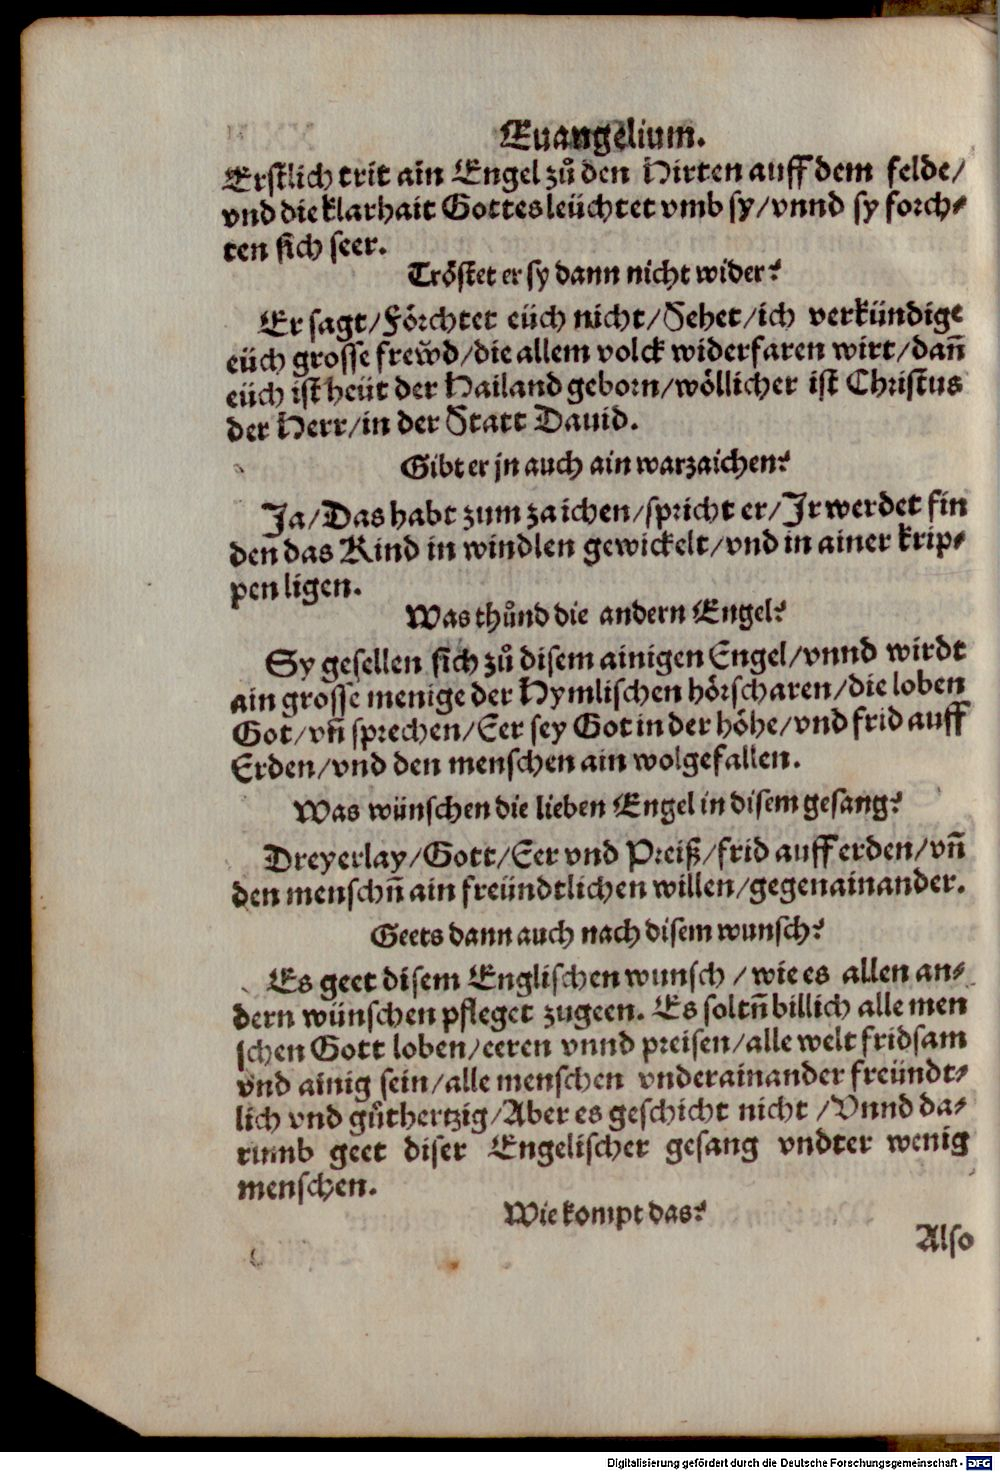 Euangelium.
Erstlich trit ain Engel zů den Hirten auff dem felde/
vnd die klarhait Gottes leüchtet vmb sy/vnnd sy forch-
ten sich seer.
Tröstet er sy dann nicht wider?
Er sagt/Förchtet eüch nicht/Sehet/ich verkündige
eüch grosse frewd/die allem volck widerfaren wirt/dañ
eüch ist heüt der Hailand geborn/wöllicher ist Christus
der Herr/in der Statt Dauid.
Gibt er jn auch ain warzaichen?
Ja/Das habt zum zaichen/spricht er/Ir werdet fin
den das Kind in windlen gewickelt/vnd in ainer krip-
pen ligen.
Was thůnd die andern Engel?
Sy gesellen sich zů disem ainigen Engel/vnnd wirdt
ain grosse menige der Hymlischen hörscharen/die loben
Got/vñ sprechen/Eer sey Got in der höhe/vnd frid auff
Erden/vnd den menschen ain wolgefallen.
Was wünschen die lieben Engel in disem gesang?
Dreyerlay/Gott/Eer vnd Preiß/frid auff erden/vñ
den menschñ ain freündtlichen willen/gegenainander.
Geets dann auch nach disem wunsch?
Es geet disem Englischen wunsch/wie es allen an-
dern wünschen pfleget zugeen. Es soltñ billich alle men
schen Gott loben/eeren vnnd preisen/alle welt fridsam
vnd ainig sein/alle menschen vnderainander freündt-
lich vnd gůthertzig/Aber es geschicht nicht/Vnnd da-
rumb geet diser Engelischer gesang vndter wenig
menschen.
Wie kompt das?
Also
Digitalisierung gefördert durch die Deutsche Forschungsgemeinschaft - DFG